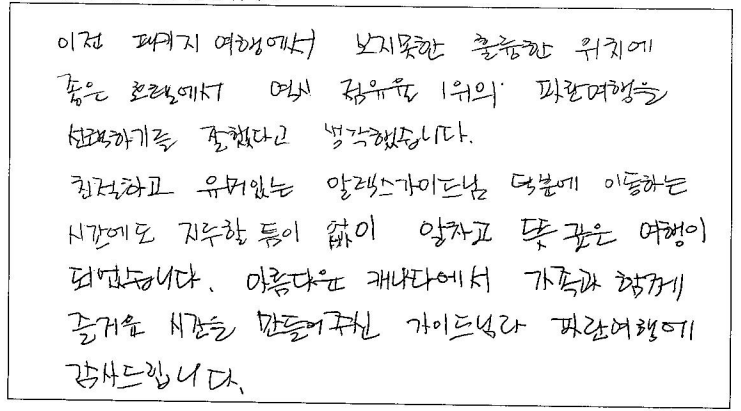 이전 패키지 여행에서 보지못한 훌륭한 위치에
좋은 호텔에서 역시 점유율 1위의 파란여행을
선택하기를 잘했다고 생각했습니다.
친절하고 유머있는 알렉스가이드님 덕분에 이동하는
시간에도 지루할 틈이 없이 알차고 뜻 깊은 여행이
되었습니다. 아름다운 캐나다에서 가족과 함께
즐거운 시간을 만들어주신 가이드님과 파란여행에
감사드립니다.